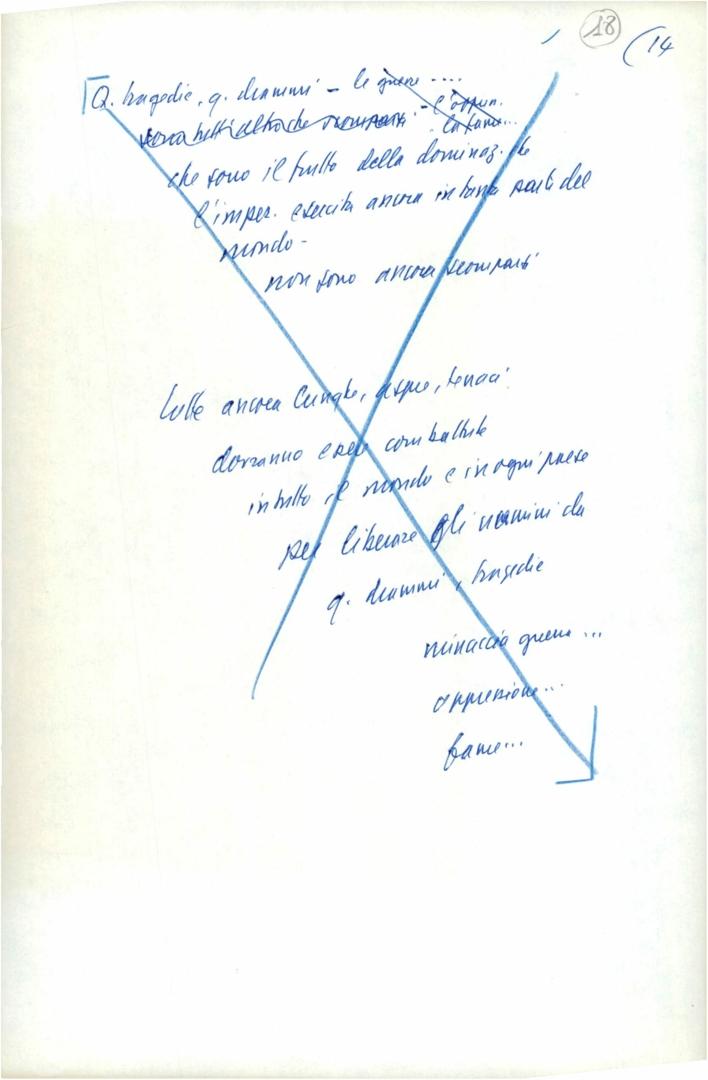 18
(14
Q. tragedie, q. drammi - le guerre ....
- l'oppr.
sono tutti altro che scomparsi - la fame...
che sono il frutto della dominaz. che
l'imper. esercita ancora in tante parti del
mondo -
non sono ancora scomparsi
lotte ancora lunghe, aspre, tenaci
dovranno essere combattute
in tutto il mondo e in ogni paese
per liberare gli uomini da
q. drammi, tragedie
minaccia guerra ...
oppressione...
fame...